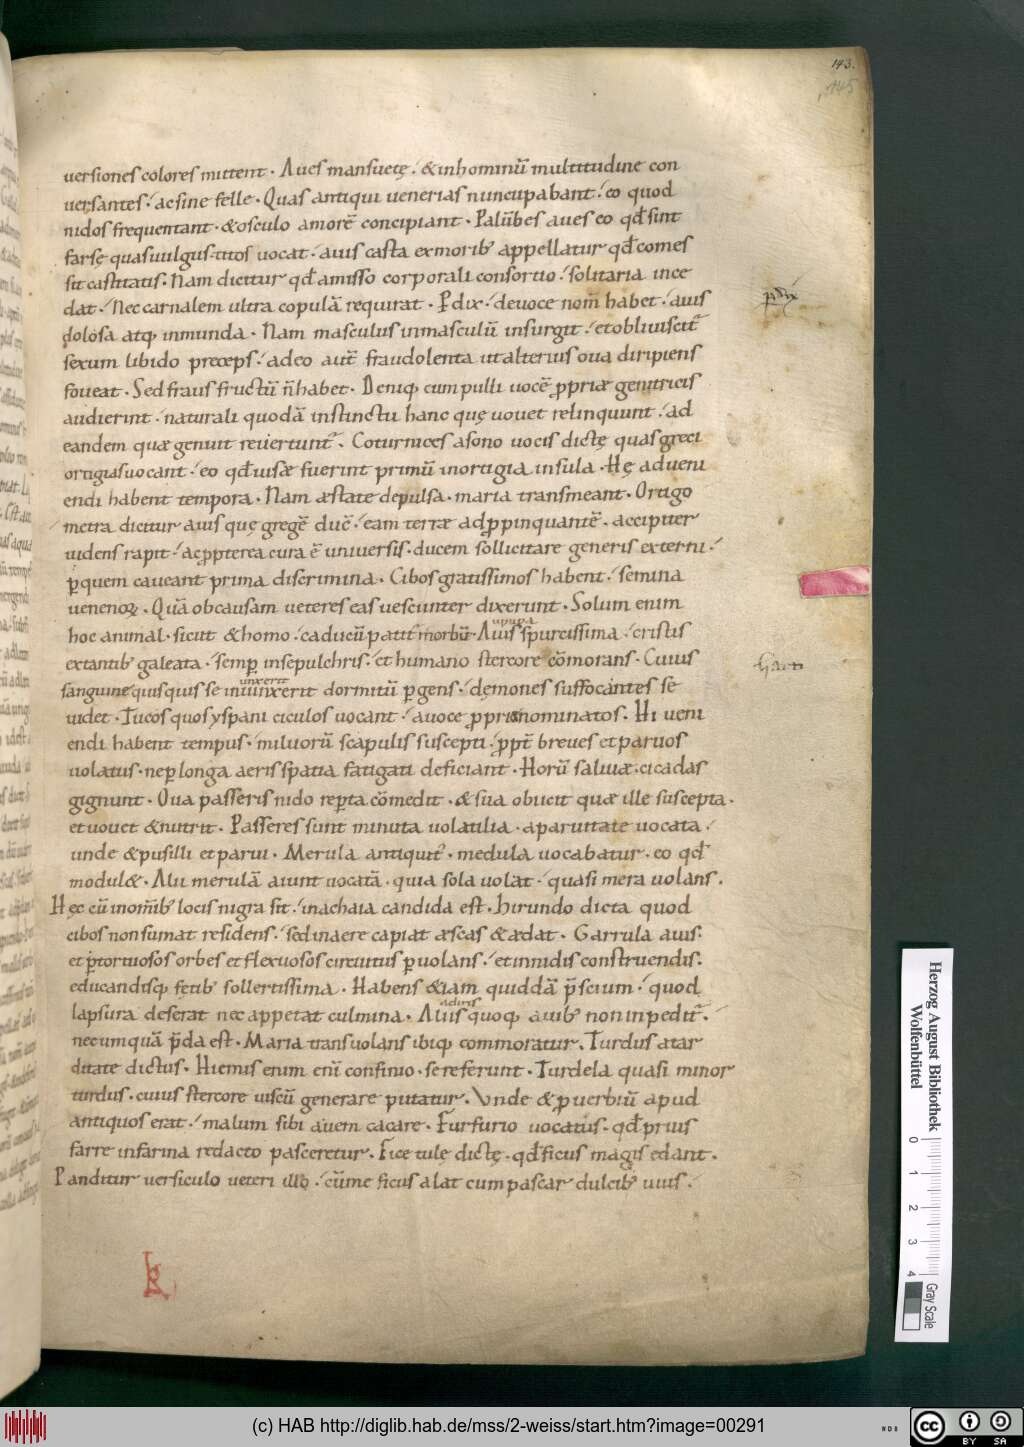 143.
145
uersiones colores mittent · Aues mansuetę ⁖ & inhominū multitudine con
uersantes ⁖ ac sine felle · Quas antiqui uenerias nuncupabant ⁖ eo quod
nidos frequentant · & osculo amorē concipiant · Palūbes aues eo qđ sint
farsę quas uulgus titos uocat ⁖ auis casta ex morib; appellatur qđ comes
sit castitatis · Nam dicitur qđ amisso corporali consortio ⁖ solitaria ince
dat ⁖ Nec carnalem ultra copulā requirat · Pdix ⁖ de uoce nom̄ habet ⁖ auis
dolosa atq; inmunda · Nam masculus in masculū insurgit ⁖ et obliuiscit̃
sexum libido preceps ⁖ adeo aut̄ fraudolenta ut alterius oua diripiens
foueat · Sed fraus fructū n̄ habet · Deniq; cum pulli uocē ꝓpriæ genitricis
audierint ⁖ naturali quodā instinctu hanc quę uouet relinquunt ⁖ ad
eandem quæ genuit reuertunt̃ · Coturnices a sono uocis dictę quas greci
ortigias uocant ⁖ eo qđ uisæ fuerint primū in ortigia insula · Hę adueni
endi habent tempora · Nam æstate depulsa · maria transmeant · Ortigo
metra dicitur auis quę gregē duc̄ ⁖ eam terræ adꝓpinquantē · accipiter
uidens rapit ⁖ ac ꝓpterea cura ē uniuersis · ducem sollicitare generis externi ⁖
ꝑ quem caueant prima discrimina · Cibos gratissimos habent ⁖ semina
uenenoꝝ · Quā ob causam ueteres eas uescı unter dixerunt · Solum enim
hoc animal · sicut & homo ⁖ caducū patit̃ morbū · Auis
upupa
spurcissima ⁖ cristis
extantib; galeata ⁖ semꝑ in sepulchris ⁖ et humano stercore cōmorans · Cuius
sanguine quisquis se inuunxerit
unxerit
dormitū ꝑgens ⁖ dęmones suffocantes se
uidet · Tucos quos yspani ciculos uocant ⁖ a uoce ꝓpria nominatos · Hi ueni
endi habent tempus · miluorū scapulis suscepti ⁖ ꝓpt̄ breues et paruos
uolatus · ne ꝑ longa aeris spatia fatigati deficiant · Horū saliuæ · cicadas
gignunt · Oua passeris nido repta cōmedit · & sua obicit quæ ille suscepta ·
et uouet & nutrit · Passeres sunt minuta uolatilia · a paruitate uocata ⁖
unde & pusilli et parui · Merula antiquit̃ · medula uocabatur · eo qđ
modulæ · Alii merulā aiunt uocatā · quia sola uolat · quasi mera uolans .
Hęc cū in om̄ib; locis nigra sit ⁖ in achaia candida est · hirundo dicta quod
cibos non sumat residens ⁖ sed in aere capiat æscas & ædat · Garrula auis:
et ꝑ tortuosos orbes et flexuosos circuitus ꝑuolans ⁖ et in nidis construendis:
educandisq; fętib; sollertissima · Habens & iam quiddā p̄scium ⁖ quod
lapsura deserat nec appetat culmina ·
a diris
quoq; auib; non inpedit̃ ·
necumquā p̄da est · Maria transuolans ibiq; commoratur . Turdus a tar
ditate dictus · Hiemis enim eni confinio · se referunt · Turdela quasi minor
turdus · cuius stercore uiscū generare putatur . Unde & ꝓuerbiū apud
antiquos erat ⁖ malum sibi auem cacare · Furfurio uocatus · qđ prius
farre in farina redacto pasceretur . Ficetulę dictę · qđ ficus magis edant .
Panditur uersiculo ueteri illo ⁖ cū me ficus alat cum pascar dulcib; uuis ⁖
pdix
Herzog August Bibliothek
Wolfenbüttel
0 1 2 3 4
Gray Scale
(c) HAB http://diglib.hab.de/mss/2-weiss/start.htm?image=00291
cc BY SA